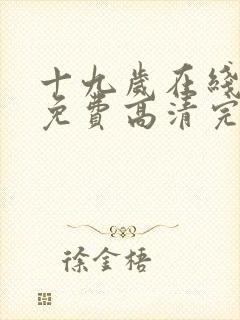 十九歲在綫
免費高清完
徐金梧